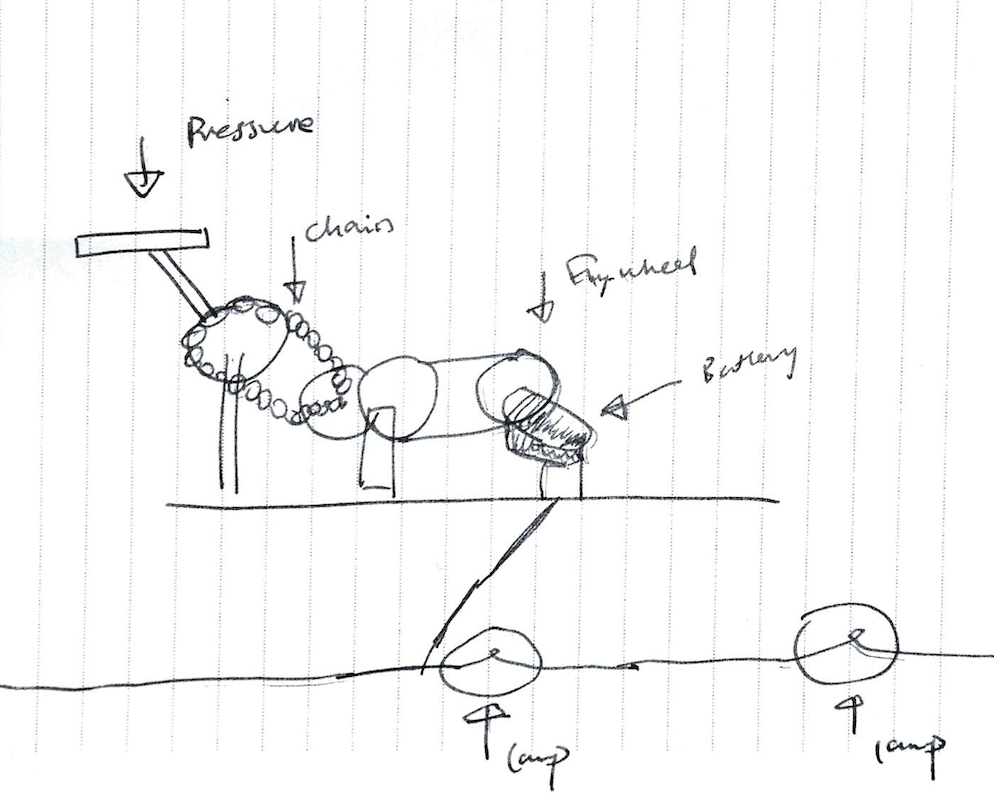 Pressure
chains
Flywheel
Battery
lamp
lamp